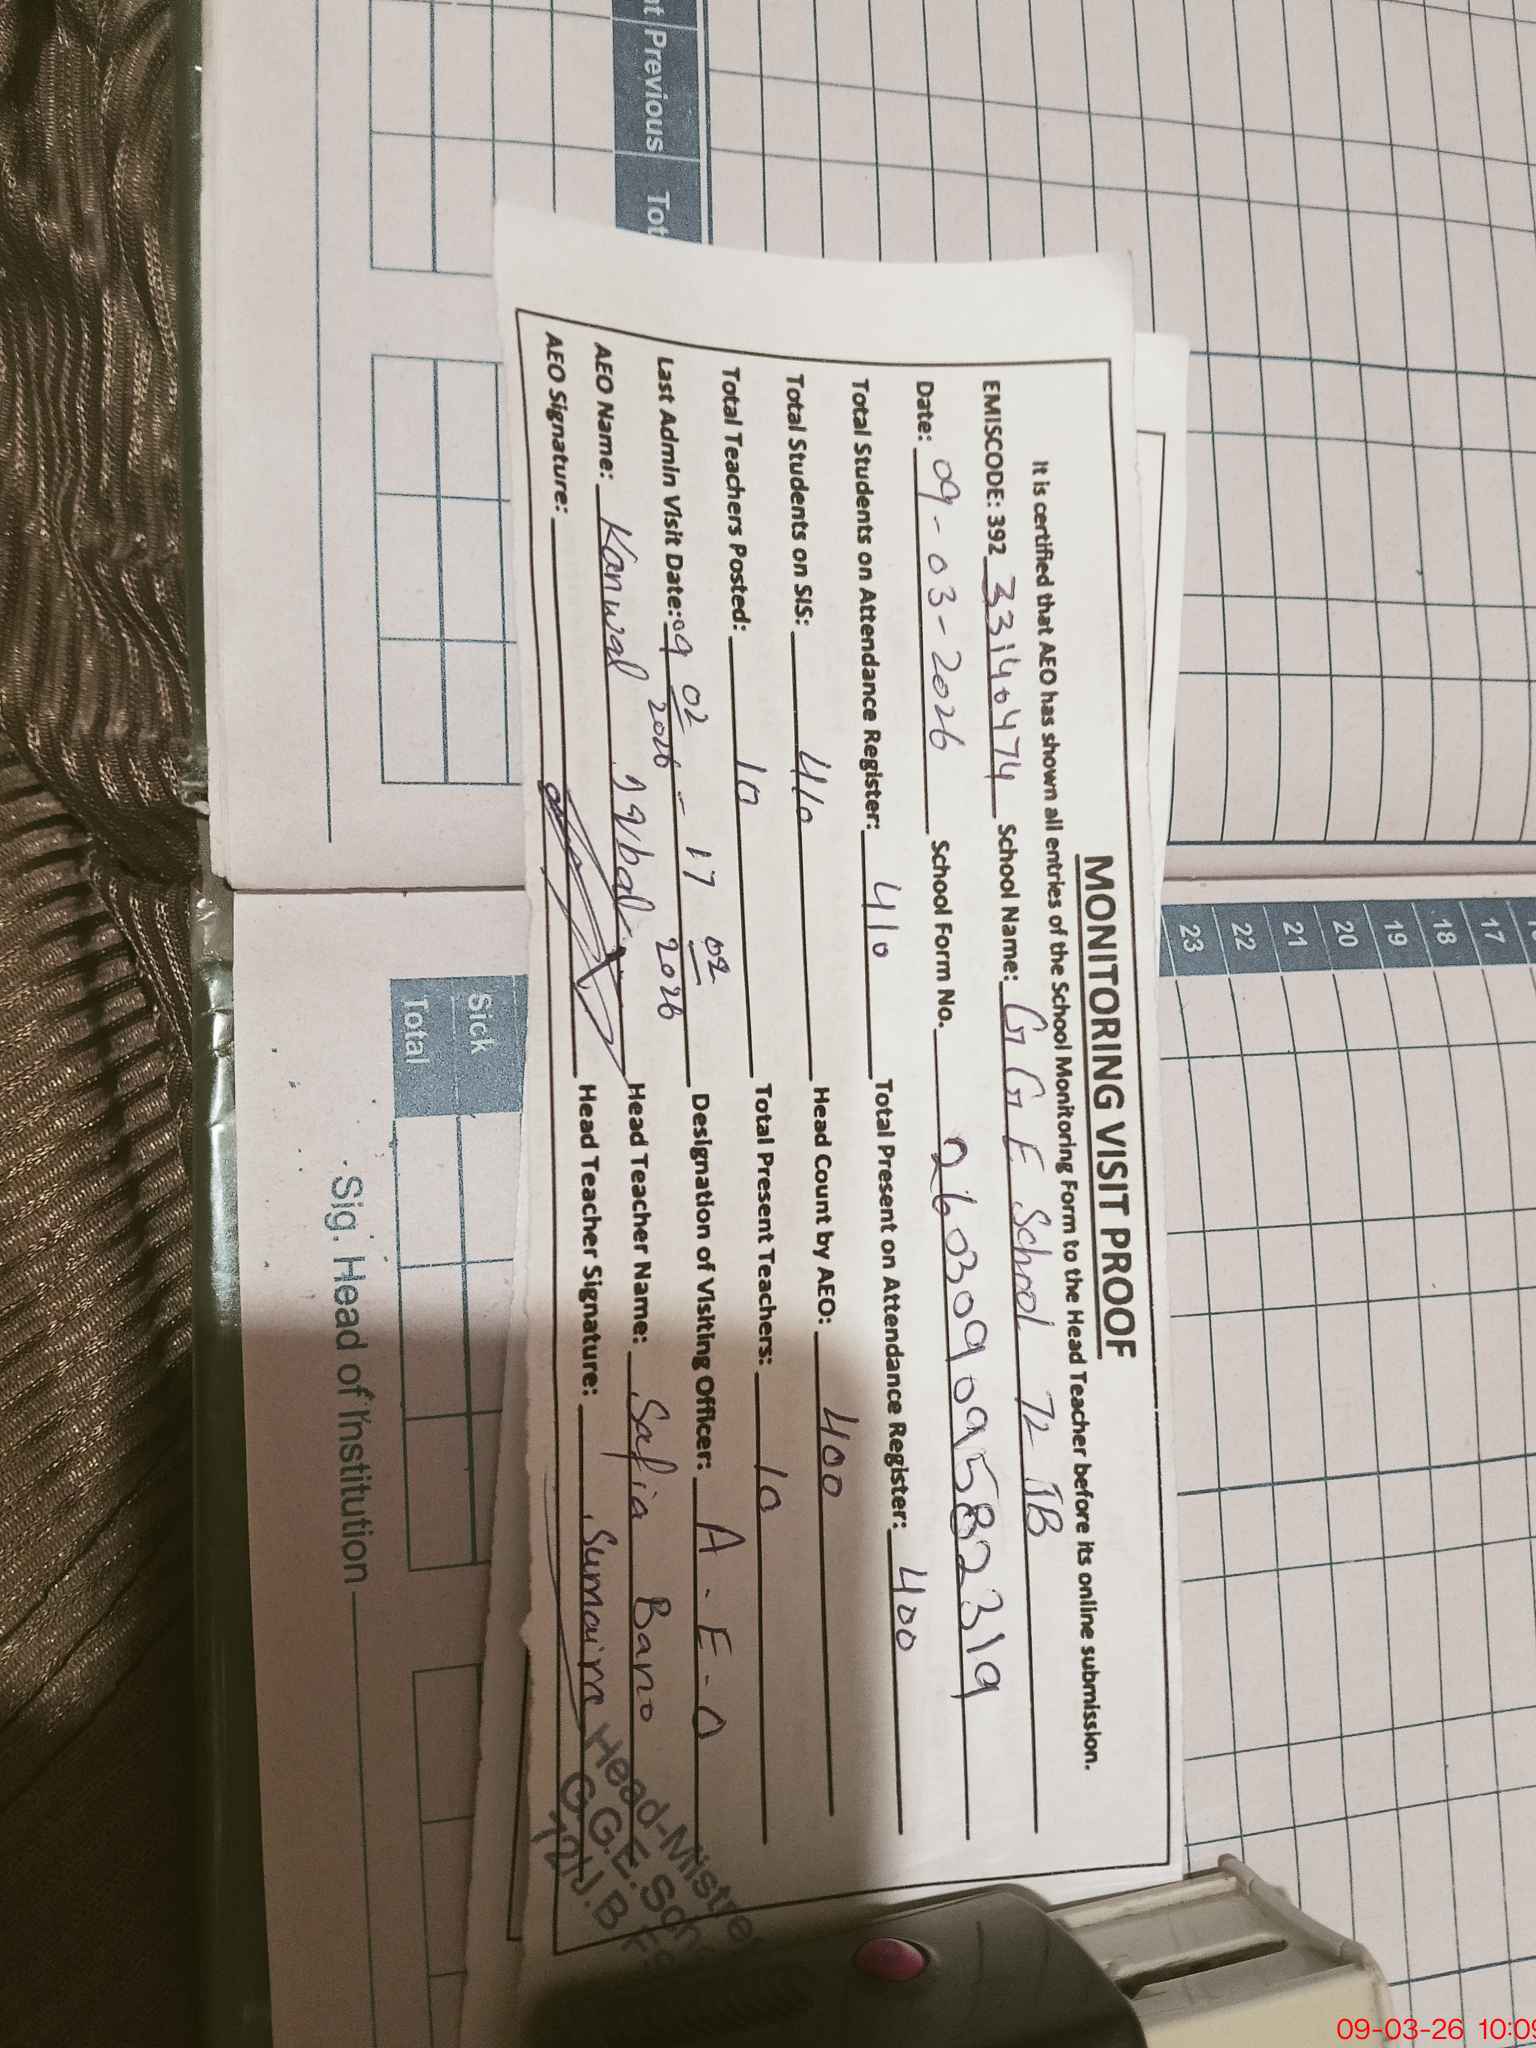 MONITORING VISIT PROOF
It is certified that AEO has shown all entries of the School Monitoring Form to the Head Teacher before its online submission.
EMISCODE: 392 33140474 School Name: G G E School 72 JB
Date: 09-03-2026 School Form No. 2603090958 2319
Total Students on Attendance Register: 410 Total Present on Attendance Register: 400
Total Students on SIS: 410 Head Count by AEO: 400
Total Teachers Posted: 10 Total Present Teachers: 10
Last Admin Visit Date: 09 02 2026 - 17 02 2026 Designation of Visiting Officer: A-E-O
AEO Name: Kanwal Iqbal Head Teacher Name: Safia Bano
AEO Signature: Head Teacher Signature: Sumaira
Head-Mistre
G.G.E. Sch
72/J.B
Previous Tot
17
18
19
20
21
22
23
Sick
Total
Sig. Head of Institution
09-03-26 10:09